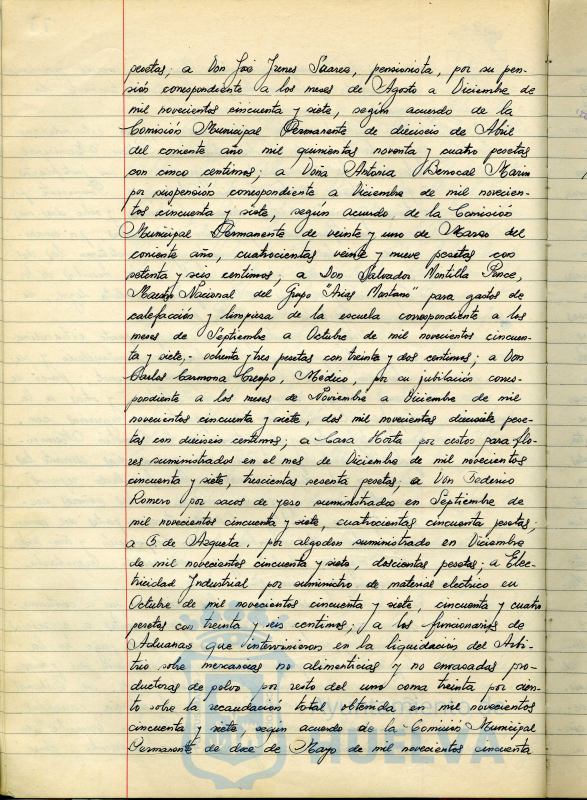 pesetas; a Don José Irenes Suarez, pensionista, por su pen-
sión correspondiente a los meses de Agosto a Diciembre de
mil novecientos cincuenta y siete, según acuerdo de la
Comisión Municipal Permanente de dieciseis de Abril
del corriente año mil quinientas noventa y cuatro pesetas
con cinco centimos; a Doña Antonia Berrocal Marin
por suspensión correspondiente a Diciembre de mil novecien-
tos cincuenta y siete, según acuerdo de la Comisión
Municipal Permanente de veinte y uno de Marzo del
corriente año, cuatrocientas veinte y nueve pesetas con
setenta y seis centimos; a Don Salvador Montilla Ponce,
Maestro Nacional del Grupo "Arias Montano" para gastos de
calefacción y limpieza de la escuela correspondiente a los
meses de Septiembre a Octubre de mil novecientos cincuen-
ta y siete,- ochenta y tres pesetas con treinta y dos centimos; a Don
Carlos Carmona Crespo, Médico, por su jubilación corres-
pondiente a los meses de Noviembre a Diciembre de mil
novecientos cincuenta y siete, dos mil novecientas diecisiete pese-
tas con dieciseis centimos; a Casa Horta por cestos para flo-
res suministrados en el mes de Diciembre de mil novecientos
cincuenta y siete, trescientas sesenta pesetas; a Don Federico
Romero por sacos de yeso suministrados en Septiembre de
mil novecientos cincuenta y siete, cuatrocientas cincuenta pesetas;
a de Azqueta, por algodon suministrado en Diciembre
de mil novecientos cincuenta y siete, doscientas pesetas; a Elec-
tricidad Industrial por suministro de material electrico en
Octubre de mil novecientos cincuenta y siete, cincuenta y cuatro
pesetas con treinta y seis centimos; a los funcionarios de
Aduanas que intervinieron en la liquidación del Arbi-
trio sobre mercancias no alimenticias y no envasadas pro-
ductoras de polvo por resto del uno coma treinta por cien-
to sobre la recaudación total obtenida en mil novecientos
cincuenta y siete, según acuerdo de la Comisión Municipal
Permanente de doce de Mayo de mil novecientos cincuenta